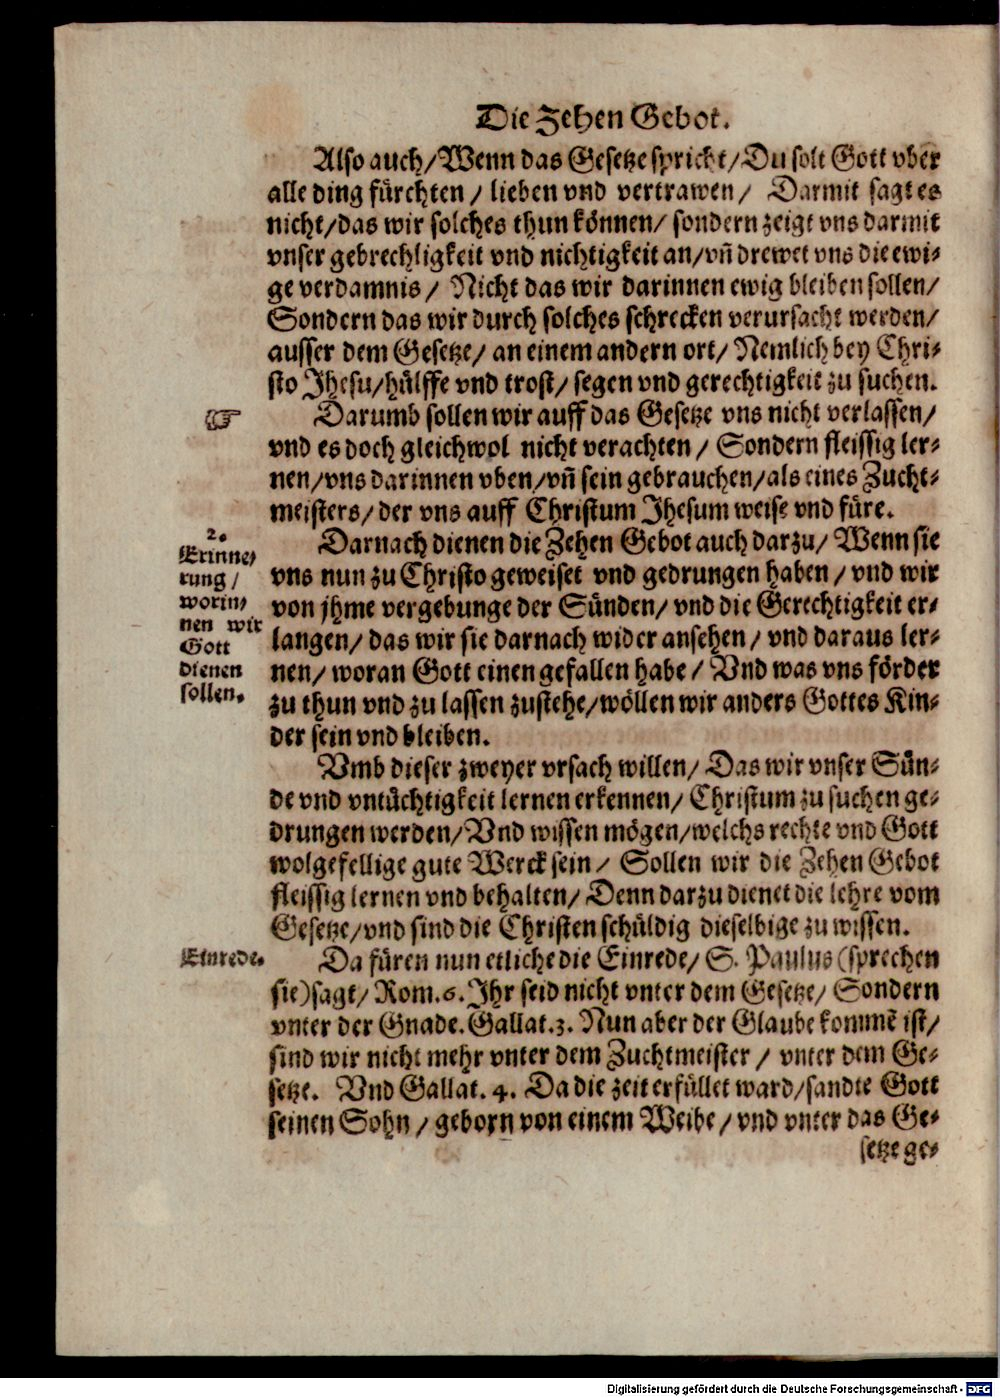 Die Zehen Gebot.
Also auch/Wenn das Gesetze spricht/Du solt Gott vber
alle ding fürchten / lieben vnd vertrawen/ Darmit sagt es
nicht/das wir solches thun können/ sondern zeigt vns darmit
vnser gebrechligkeit vnd nichtigkeit an/vñ drewet vns die ewi-
ge verdamnis / Nicht das wir darinnen ewig bleiben sollen/
Sondern das wir durch solches schrecken verursacht werden/
ausser dem Gesetze/ an einem andern ort/ Nemlich bey Chri-
sto Jhesu/hülffe vnd trost/ segen vnd gerechtigkeit zu suchen.
☞ Darumb sollen wir auff das Gesetze vns nicht verlassen/
vnd es doch gleichwol nicht verachten / Sondern fleissig ler-
nen/vns darinnen vben/vñ sein gebrauchen/als eines Zucht-
meisters/ der vns auff Christum Jhesum weise vnd füre.
2.
Erinne-
rung /
worin-
nen wir
Gott
dienen
sollen.
Darnach dienen die Zehen Gebot auch darzu/ Wenn sie
vns nun zu Christo geweiset vnd gedrungen haben / vnd wir
von jhme vergebunge der Sünden/ vnd die Gerechtigkeit er-
langen/ das wir sie darnach wider ansehen / vnd daraus ler-
nen/ woran Gott einen gefallen habe / Vnd was vns förder
zu thun vnd zu lassen zustehe/wöllen wir anders Gottes Kin-
der sein vnd bleiben.
Vmb dieser zweyer vrsach willen/ Das wir vnser Sün-
de vnd vntüchtigkeit lernen erkennen/ Christum zu suchen ge-
drungen werden/Vnd wissen mögen/welchs rechte vnd Gott
wolgefellige gute Werck sein / Sollen wir die Zehen Gebot
fleissig lernen vnd behalten/ Denn darzu dienet die lehre vom
Gesetze/vnd sind die Christen schüldig dieselbige zu wissen.
Einrede.
Da füren nun etliche die Einrede/ S. Paulus (sprechen
sie) sagt/ Rom.6. Ihr seid nicht vnter dem Gesetze/ Sondern
vnter der Gnade. Gallat.3. Nun aber der Glaube kommẽ ist/
sind wir nicht mehr vnter dem Zuchtmeister / vnter dem Ge-
setze. Vnd Gallat. 4. Da die zeit erfüllet ward/sandte Gott
seinen Sohn / geborn von einem Weibe / vnd vnter das Ge-
setze ge-
Digitalisierung gefördert durch die Deutsche Forschungsgemeinschaft - DFG